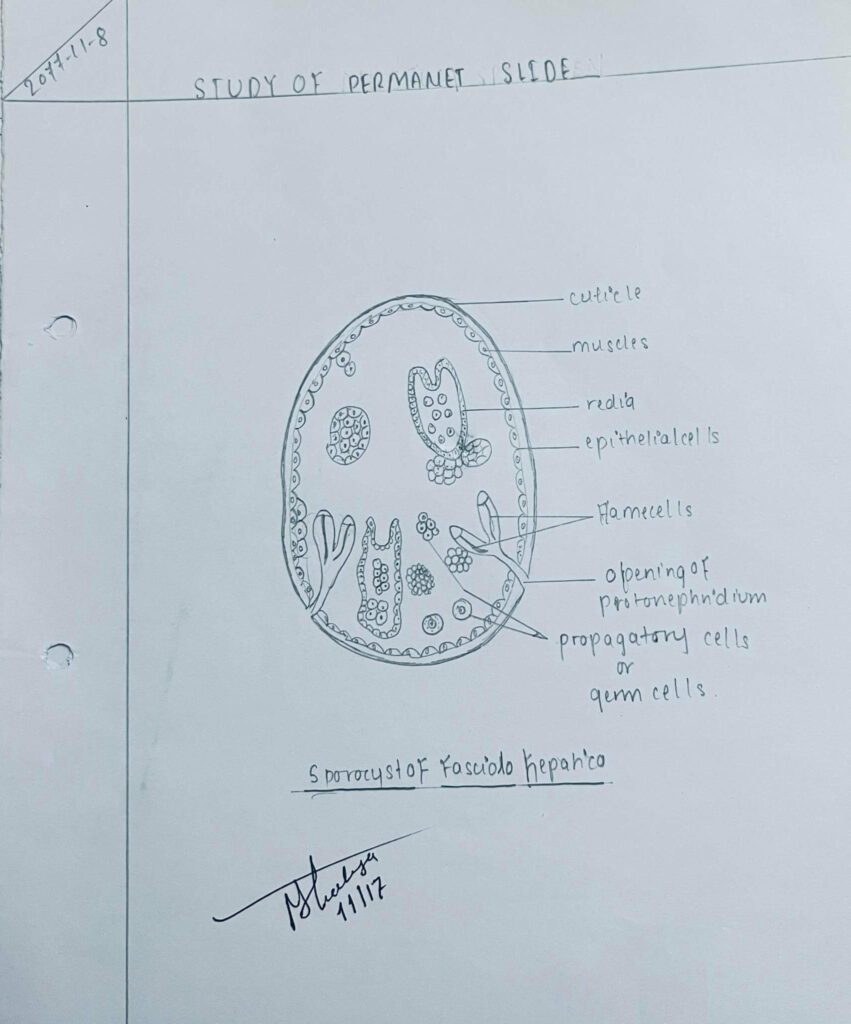 2077-11-8
STUDY OF PERMANET SLIDE
cuticle
muscles
redia
epithelial cells
flamecells
opening of
protonephridium
propagatory cells
or
germ cells.
Sporocyst of Fasciola hepatica
11/17